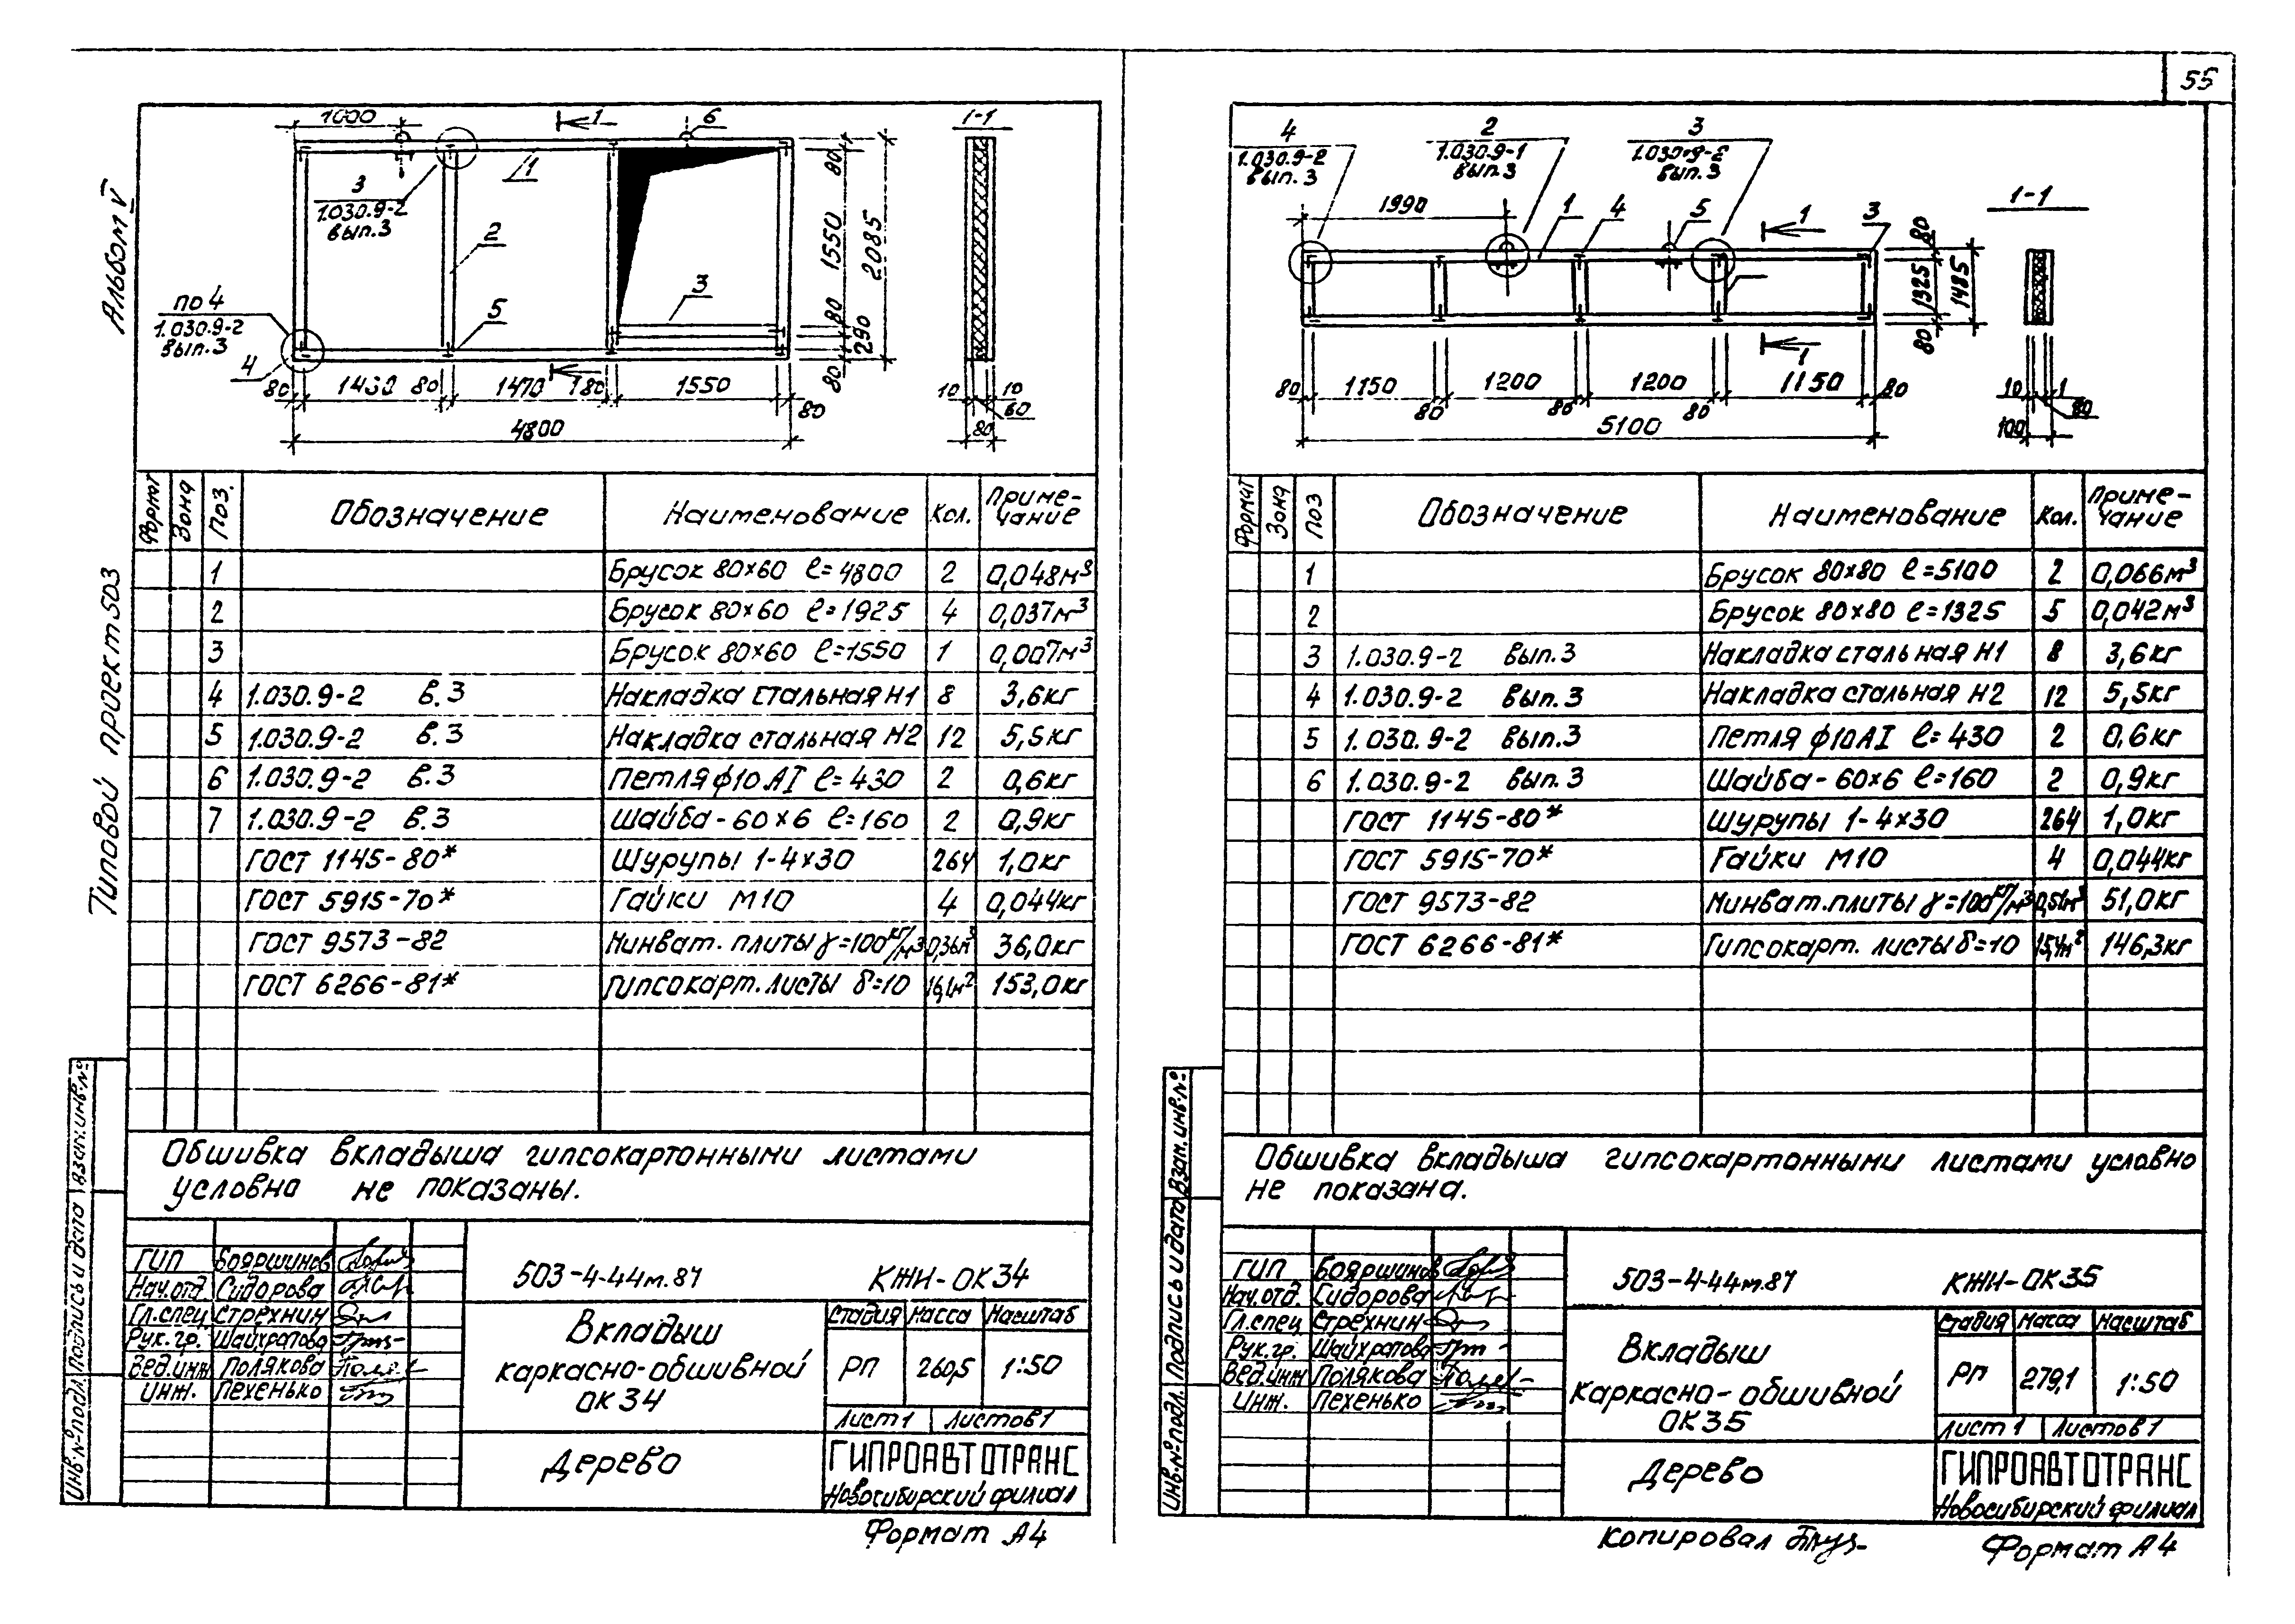 55
Альбом V
Типовой проект 503
1000
1
6
1-1
1
3
1.030.9-2
вып.3
2
по 4
1.030.9-2
вып.3
4
5
3
80
1550
80
290
80
2085
80
1430
80
1470
80
1550
80
4800
10
10
60
80
Формат
Зона
Поз.
Обозначение
Наименование
Кол.
Приме-
чание
1 Брусок 80×60 ℓ=4800 2 0,048м³
2 Брусок 80×60 ℓ=1925 4 0,037м³
3 Брусок 80×60 ℓ=1550 1 0,007м³
4 1.030.9-2 в.3 Накладка стальная Н1 8 3,6кг
5 1.030.9-2 в.3 Накладка стальная Н2 12 5,5кг
6 1.030.9-2 в.3 Петля ф10АI ℓ=430 2 0,6кг
7 1.030.9-2 в.3 Шайба-60×6 ℓ=160 2 0,9кг
ГОСТ 1145-80* Шурупы 1-4×30 264 1,0кг
ГОСТ 5915-70* Гайки М10 4 0,044кг
ГОСТ 9573-82 Минват. плиты γ=100кг/м3 0,36м³ 36,0кг
ГОСТ 6266-81* Гипсокарт. листы δ=10 16,1м² 153,0кг
Обшивка вкладыша гипсокартонными листами
условно не показаны.
Взам.инв.№
Подпись и дата
Инв.№ подл.
ГИП Бояршинов
Нач.отд Сидорова
Гл.спец Стрехнин
Рук.гр. Шайхратова
Вед.инж Полякова
Инж. Пехенько
503-4-44м.87 КЖИ-ОК34
Вкладыш
каркасно-обшивной
ОК34
Стадия Масса Масштаб
РП 260,5 1:50
Лист 1 Листов 1
Дерево
ГИПРОАВТОТРАНС
Новосибирский филиал
Формат А4
4
1.030.9-2
вып.3
2
1.030.9-1
вып.3
3
1.030.9-2
вып.3
1990
1
4
5
1
3
1-1
80
1325
80
1485
1
80
1150
80
1200
80
1200
80
1150
80
5100
10
1
80
100
Формат
Зона
Поз
Обозначение
Наименование
Кол.
Приме-
чание
1 Брусок 80×80 ℓ=5100 2 0,066м³
2 Брусок 80×80 ℓ=1325 5 0,042м³
3 1.030.9-2 вып.3 Накладка стальная Н1 8 3,6кг
4 1.030.9-2 вып.3 Накладка стальная Н2 12 5,5кг
5 1.030.9-2 вып.3 Петля ф10АI ℓ=430 2 0,6кг
6 1.030.9-2 вып.3 Шайба-60×6 ℓ=160 2 0,9кг
ГОСТ 1145-80* Шурупы 1-4×30 264 1,0кг
ГОСТ 5915-70* Гайки М10 4 0,044кг
ГОСТ 9573-82 Минват.плиты γ=100кг/м3 0,51м³ 51,0кг
ГОСТ 6266-81* Гипсокарт. листы δ=10 15,4м² 146,3кг
Обшивка вкладыша гипсокартонными листами условно
не показана.
Взам.инв.№
Подпись и дата
Инв.№ подл.
ГИП Бояршинов
Нач.отд. Сидорова
Гл.спец Стрехнин
Рук.гр. Шайхратова
Вед.инж Полякова
Инж. Пехенько
503-4-44м.87 КЖИ-ОК35
Вкладыш
каркасно-обшивной
ОК35
Стадия Масса Масштаб
РП 279,1 1:50
Лист 1 Листов 1
Дерево
ГИПРОАВТОТРАНС
Новосибирский филиал
Копировал
Формат А4